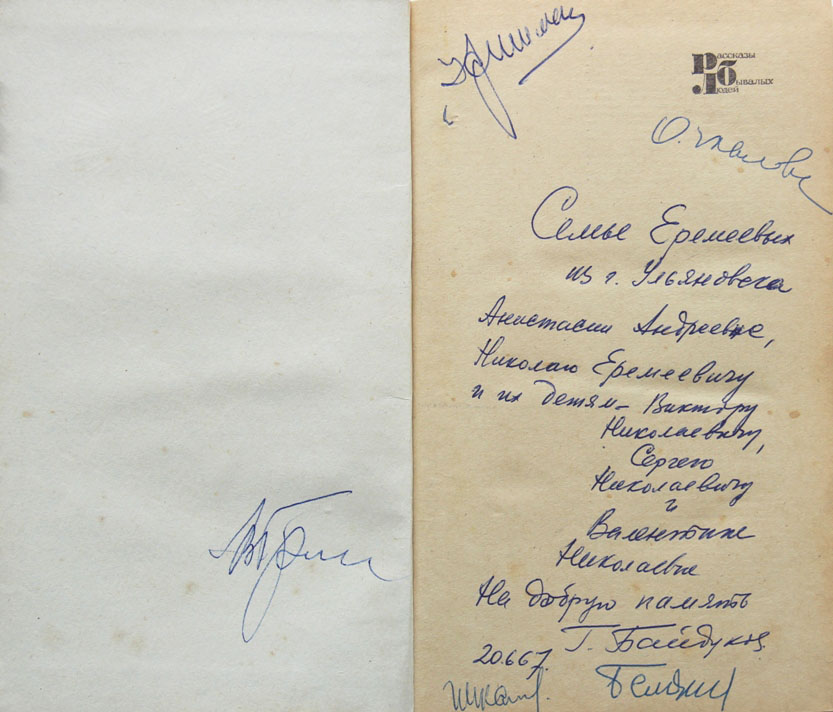 Рассказы
Бывалых
Людей
О. Чкалова
Семье Еремеевых
из г. Ульяновска
Анастасии Андреевне,
Николаю Еремеевичу
и их детям – Виктору
Николаевичу,
Сергею
Николаевичу
и
Валентине
Николаевне
На добрую память
Г. Байдуков
20.6.67.